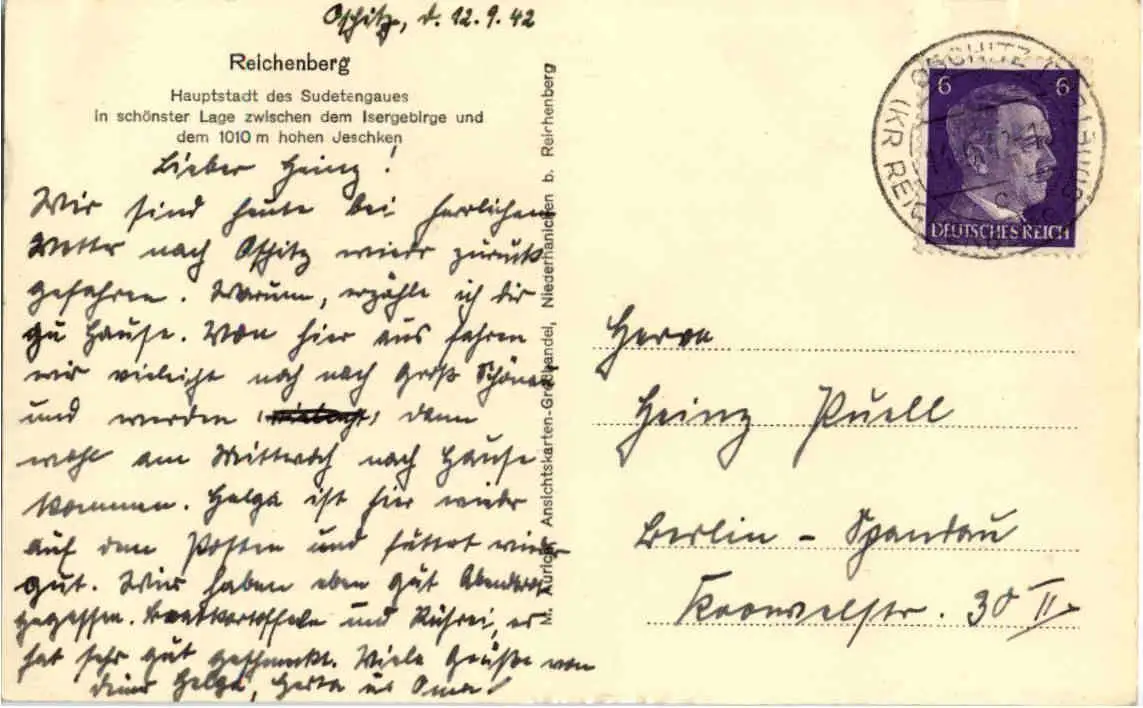 Oschitz, d. 12.9.42
Reichenberg
Hauptstadt des Sudetengaues
in schönster Lage zwischen dem Isergebirge und
dem 1010 m hohen Jeschken
Lieber Heinz!
Wir sind heute bei herrlichem
Wetter nach Oschitz wieder zurück
gefahren. Warum, erzähle ich dir
zu Hause. Von hier aus fahren
wir vieleicht noch nach Groß Schönau
und werden dann
wohl am Mittwoch nach Hause
kommen. Helga ist hier wieder
auf dem Posten und futtert wieder
gut. Wir haben eben gut Abendbrot
gegessen. Bratkartoffeln und Rührei, es
hat sehr gut geschmeckt. Viele Grüße von
deiner Helga, Herta u. Oma!
M. Aurich, Ansichtskarten-Großhandel, Niederhanichen b. Reichenberg
OSCHITZ
(KR REICHENBERG
6 6
DEUTSCHES REICH
Herrn
Heinz Puell
Berlin - Spandau
30 II